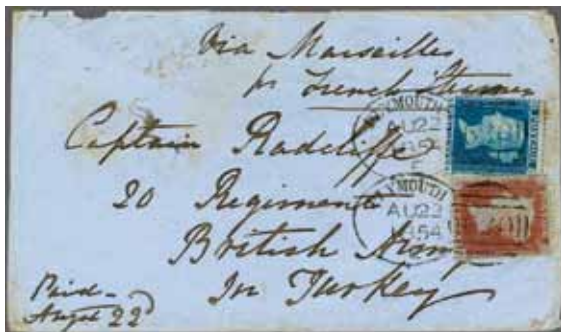 Via Marseilles
pr French Steamer
Captain Radcliffe
20 Regiment
British Army
In Turkey
Paid
Augst 22
YMOUTH
AU22
YMOUTH
AU22
1854